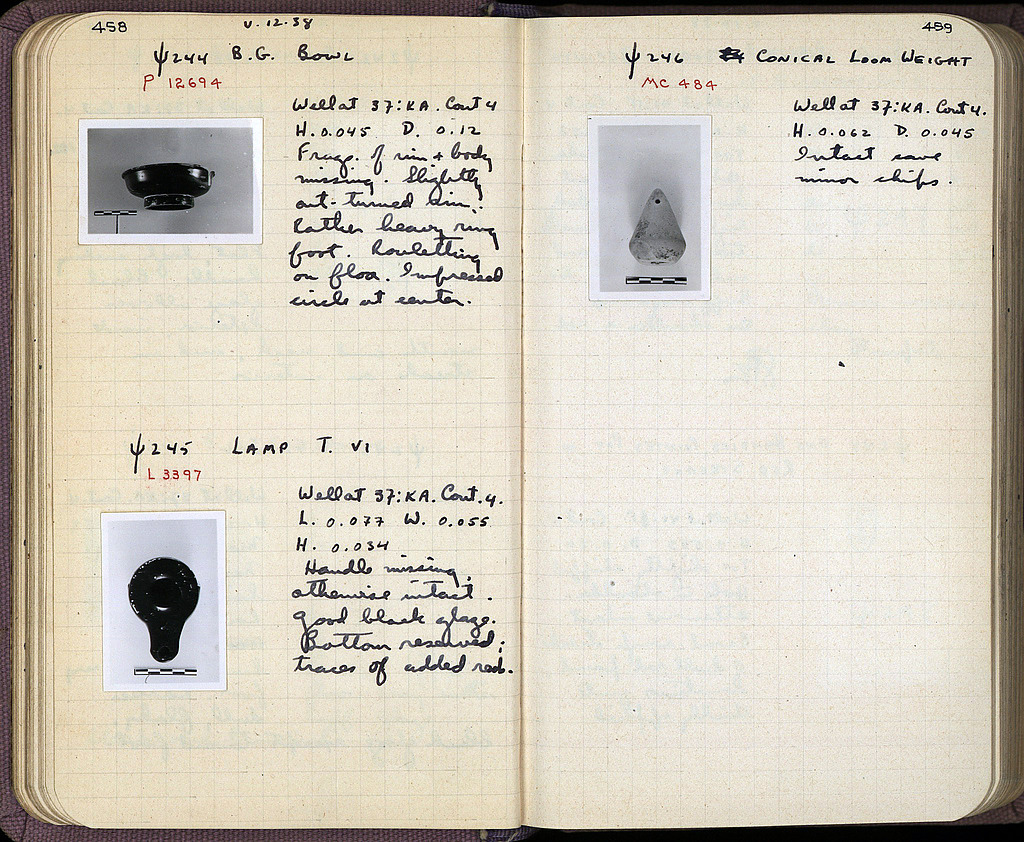 458
V.12.38
ψ244 B.G. Bowl
P 12694
Well at 37:KA. Cont. 4
H. 0.045 D. 0.12
Frags. of rim + body
missing. Slightly
out-turned rim.
Rather heavy ring
foot. Rouletting
on floor. Impressed
circle at center.
ψ245 LAMP T. VI
L 3397
Well at 37:KA. Cont. 4.
L. 0.077 W. 0.055
H. 0.034
Handle missing,
otherwise intact.
Good black glaze.
Bottom reserved;
traces of added red.
459
ψ246 CONICAL LOOM WEIGHT
MC 484
Well at 37:KA. Cont 4.
H. 0.062 D. 0.045
Intact save
minor chips.